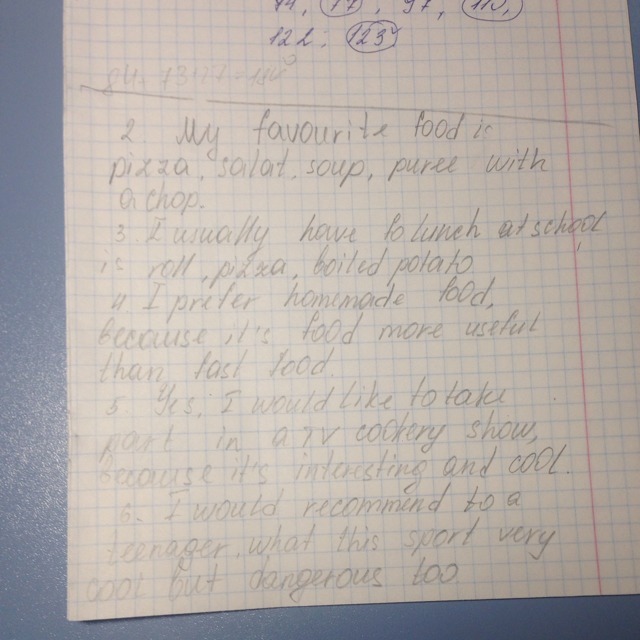 122; 123
2. My favourite food is
pizza, salat, soup, puree with
a chop.
3. I usually have to lunch at school
is roll, pizza, boiled potato
4. I prefer homemade food,
because it's food more useful
than fast food.
5. Yes, I would like to take
part in a TV cookery show,
because it's interesting and cool.
6. I would recommend to a
teenager, what this sport very
cool but dangerous too